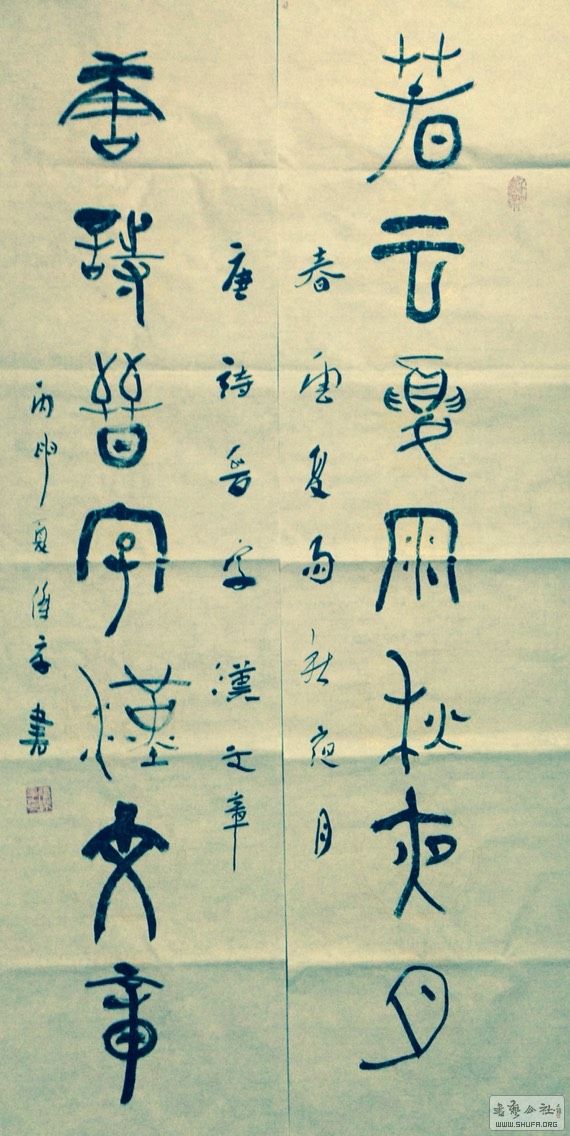 春云夏雨秋夜月
春雲夏雨秋夜月
唐詩晉字漢文章
唐詩晉字漢文章
丙申夏 書
書藝公社
WWW.SHUFA.ORG